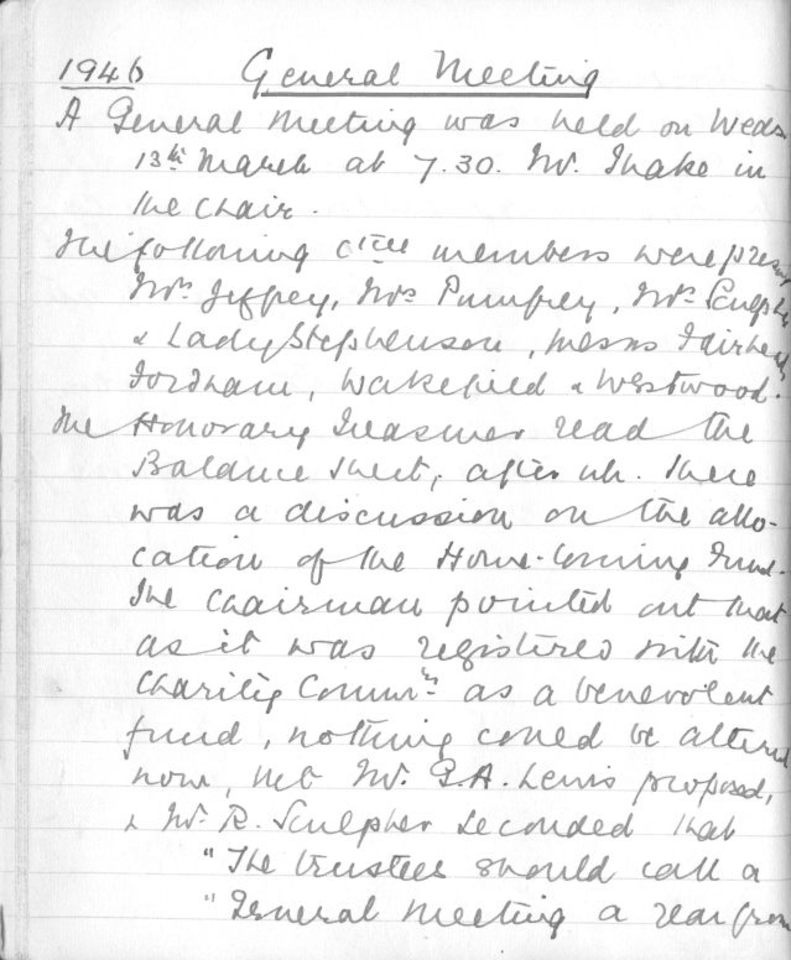 1946 General Meeting
A General Meeting was held on Weds
13th March at 7.30. Mr. Thake in
the Chair.
The following cttee members were present
Mrs Jeffrey, Mrs Pumfrey, Mrs Sculpher
& Lady Stephenson, Messrs Fairhead
Fordham, Wakefield & Westwood.
The Honorary Treasurer read the
Balance Sheet, after wh. there
was a discussion on the allo-
cation of the Home-Coming Fund.
The Chairman pointed out that
as it was registered with the
Charity Commrs as a benevolent
fund, nothing could be altered
now, Mr. G.A. Lewis proposed,
& Mr. R. Sculpher seconded that
"The trustees should call a
"General Meeting a year from